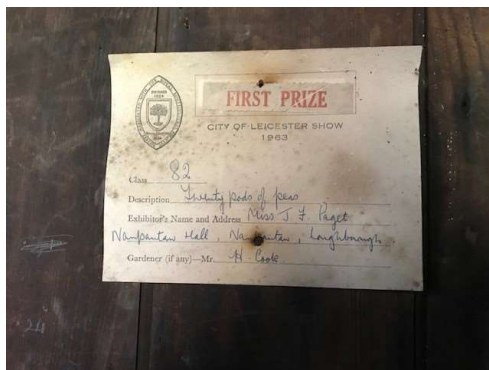 FIRST PRIZE
CITY OF LEICESTER SHOW
1963
Class 82
Description Twenty pods of peas
Exhibitor's Name and Address Miss J F. Paget
Nanpantan Hall, Nanpantan, Loughborough
Gardener (if any)—Mr. H. Cook.
24